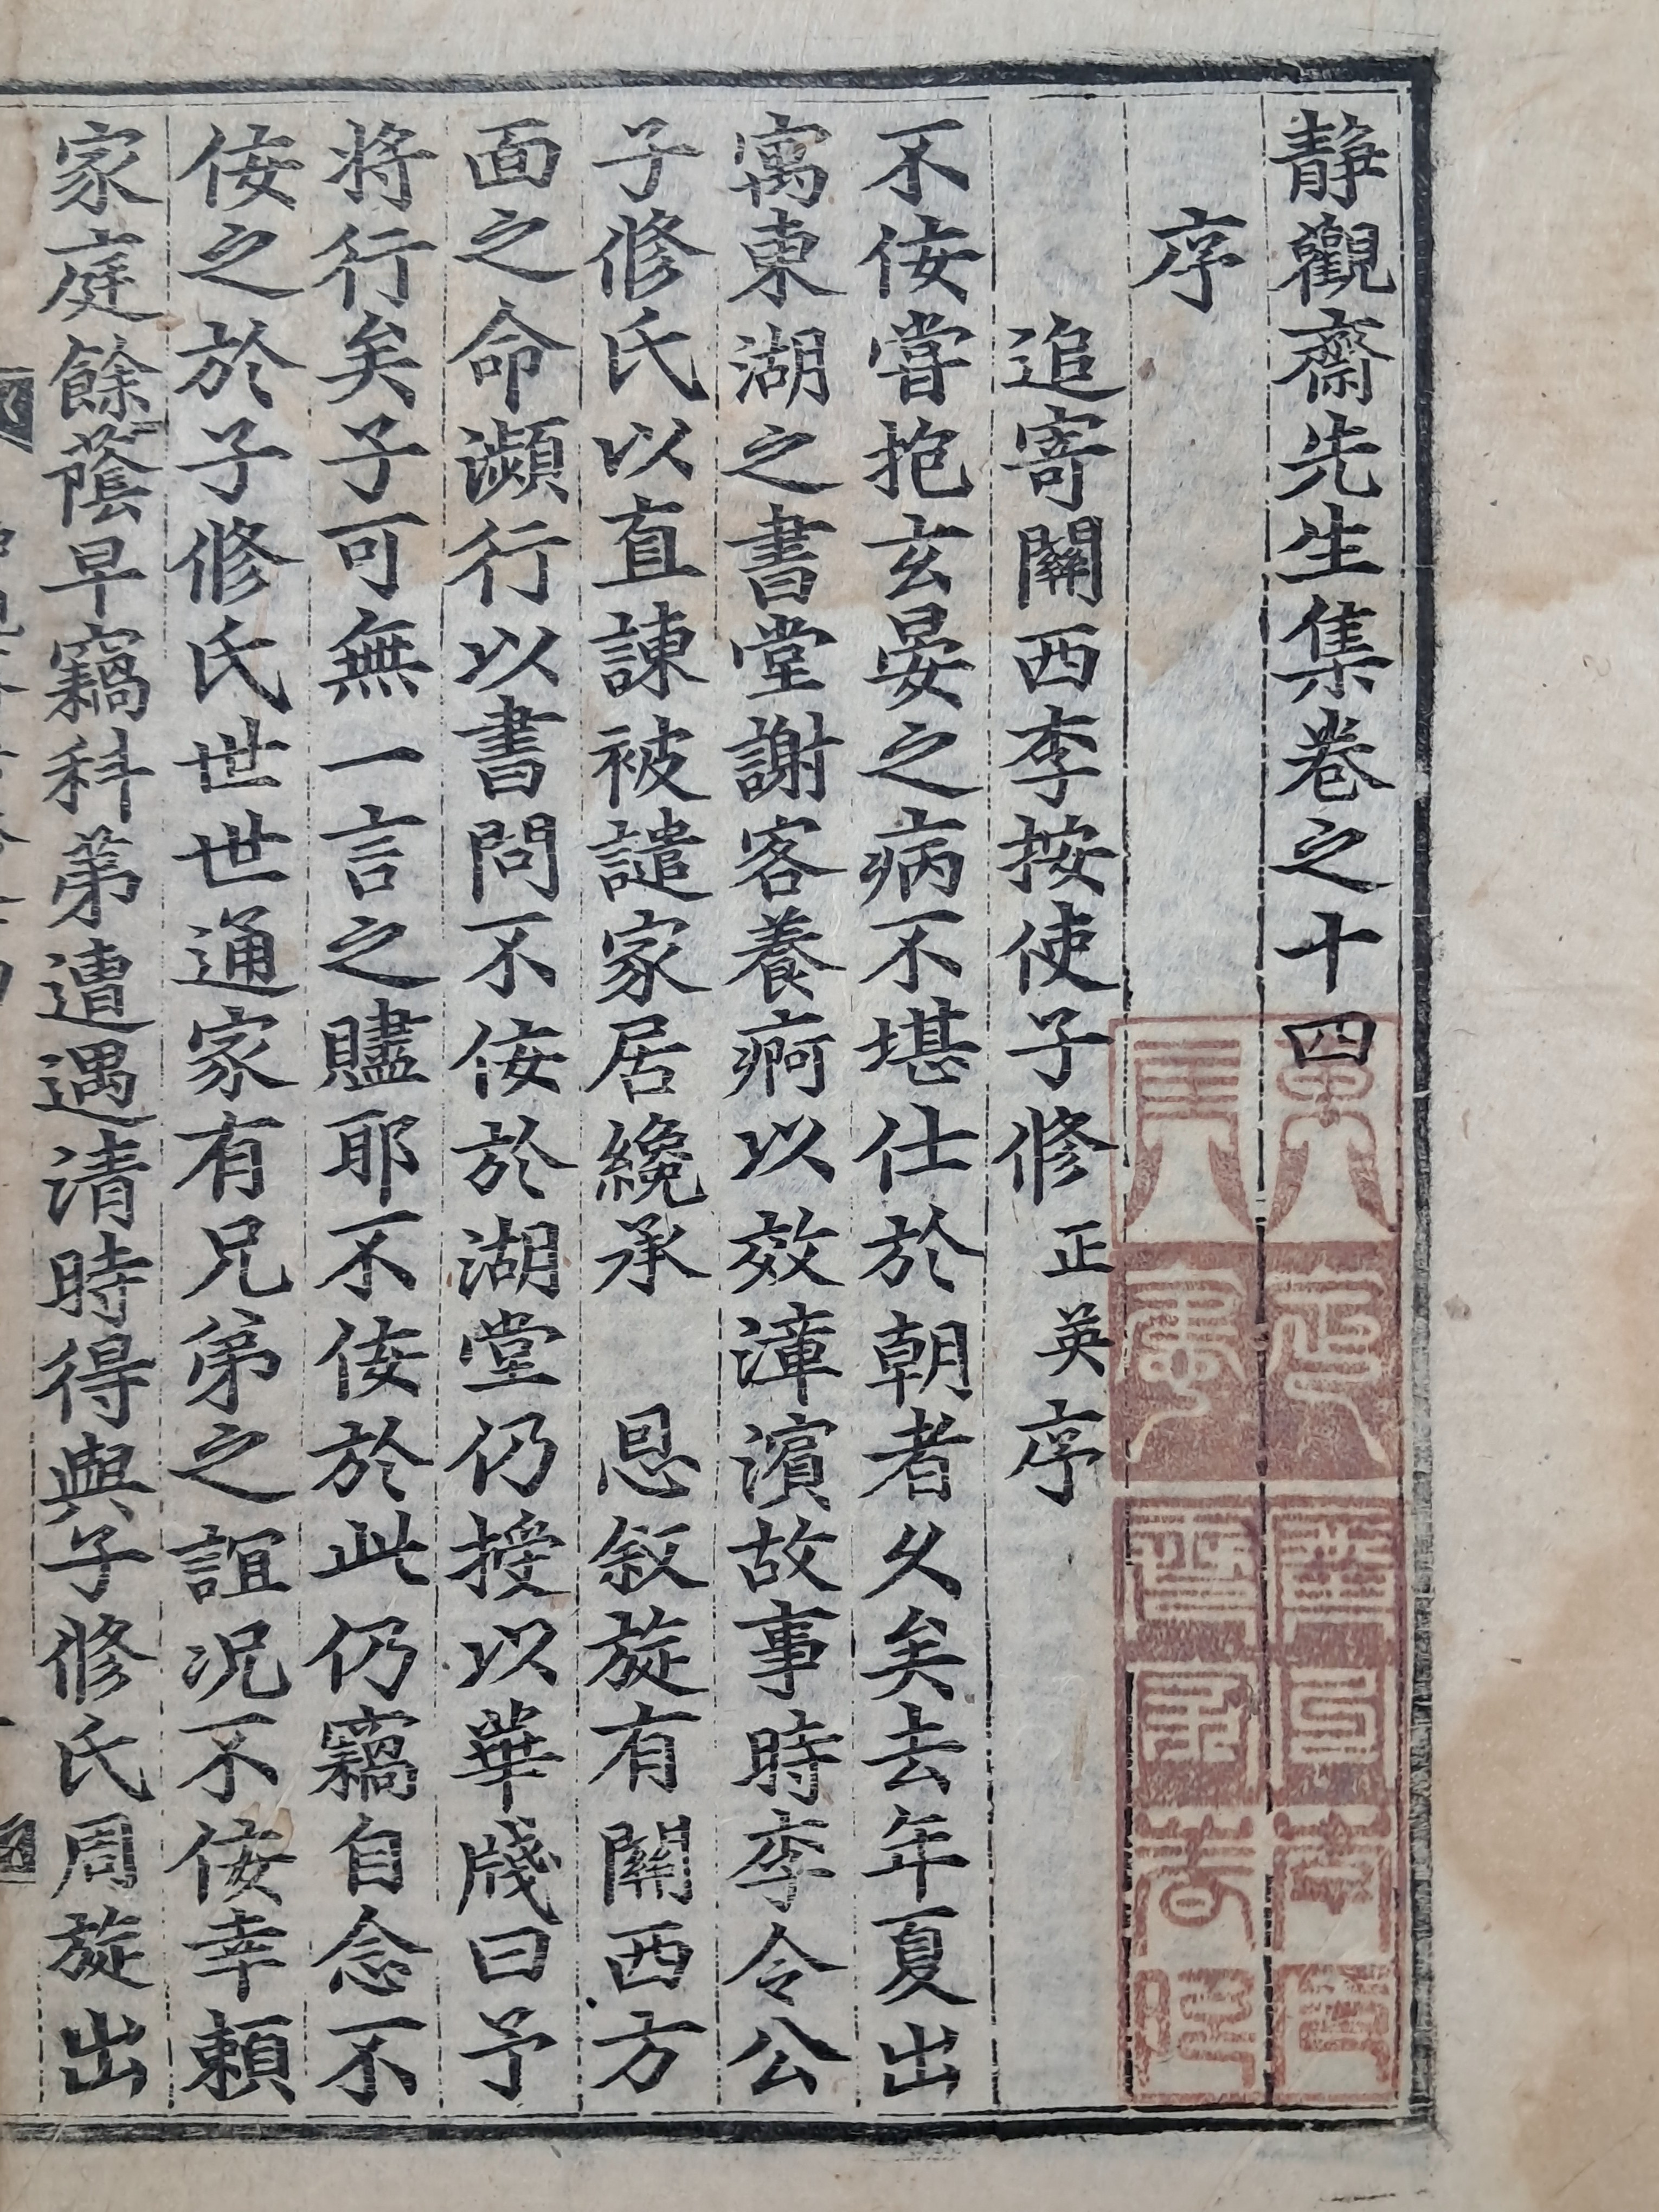 靜觀齋先生集卷之十四
序
追寄關西李按使子修正英序
不佞嘗抱玄晏之病不堪仕於朝者久矣去年夏出
寓東湖之書堂謝客養痾以效漳濱故事時李令公
子修氏以直諫被譴家居纔承 恩敘旋有關西方
面之命瀕行以書問不佞於湖堂仍授以華牋曰予
將行矣子可無一言之贐耶不佞於此仍竊自念不
佞之於子修氏世世通家有兄弟之誼況不佞幸賴
家庭餘蔭早竊科第遭遇清時得與子修氏周旋出